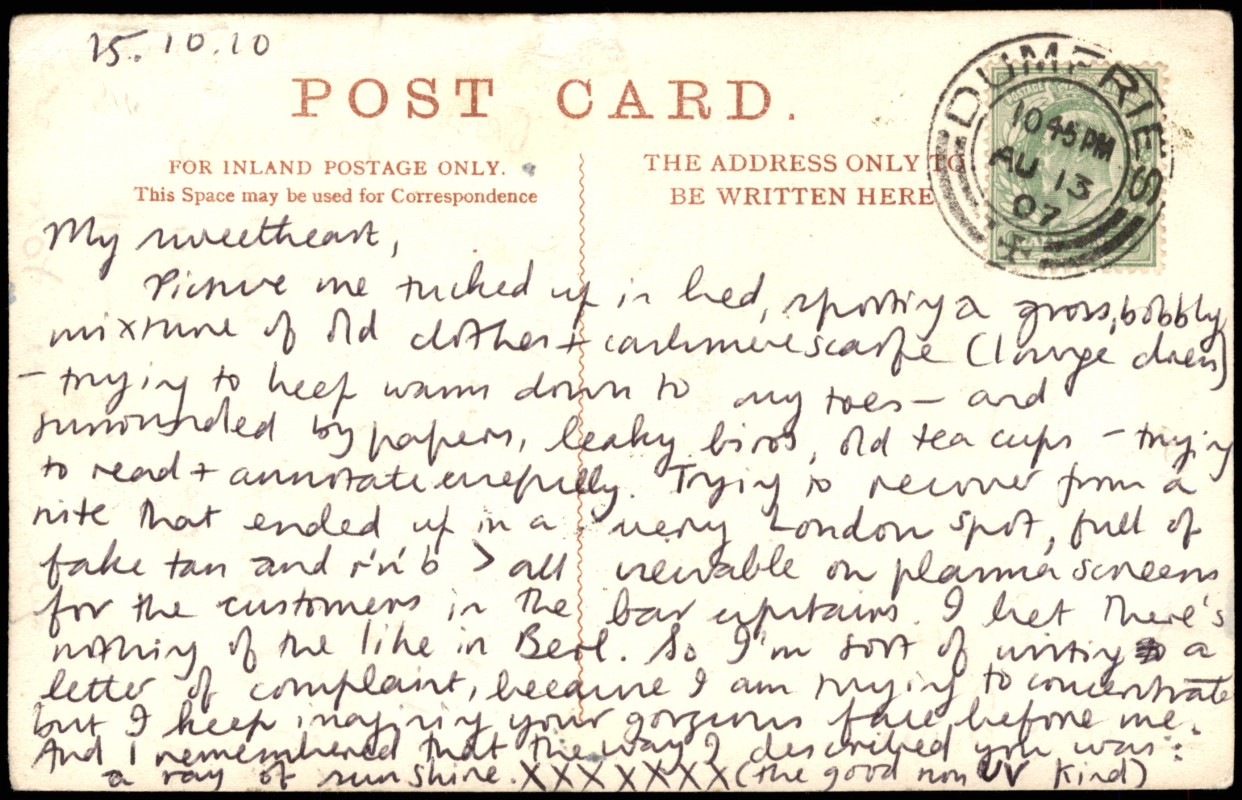 15.10.10
POST CARD.
FOR INLAND POSTAGE ONLY.
This Space may be used for Correspondence
THE ADDRESS ONLY TO
BE WRITTEN HERE
DUMFRIES
10 45 PM
AU 13
07
My sweetheart,
Picture me tucked up in bed, sporting a gross, bobbly
mixture of old clothes + cashmere scarfe (lounge dress)
- trying to keep warm down to my toes - and
surrounded by papers, leaky biros, old tea cups - trying
to read + annotate carefully. Trying to recover from a
nite that ended up in a very London spot, full of
fake tan and r'n'b > all viewable on plasma screens
for the customers in the bar upstairs. I bet there's
nothing of the like in Berl. So I'm sort of writing a
letter of complaint, because I am trying to concentrate
but I keep imagining your gorgeous face before me.
And I remembered that the way I described you was:
a ray of sunshine. XXXXXXX (the good non UV kind)